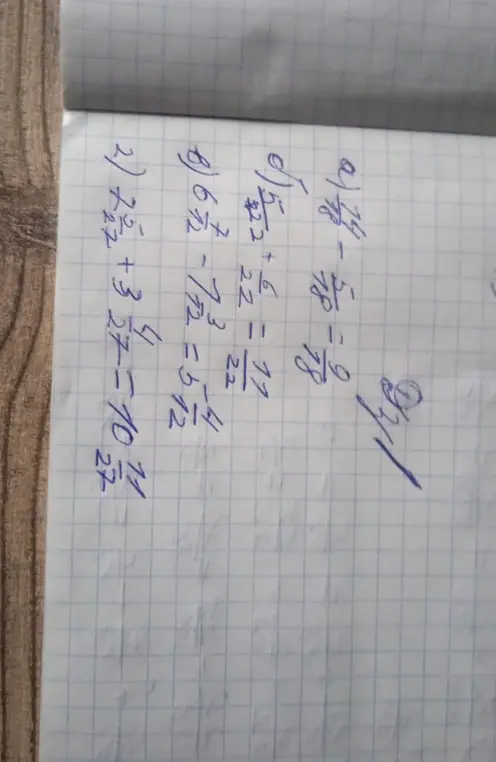 №1
а) 14/18 - 5/18 = 9/18
б) 5/22 + 6/22 = 11/22
в) 6 7/12 - 1 3/12 = 5 4/12
г) 7 5/27 + 3 4/27 = 10 11/27